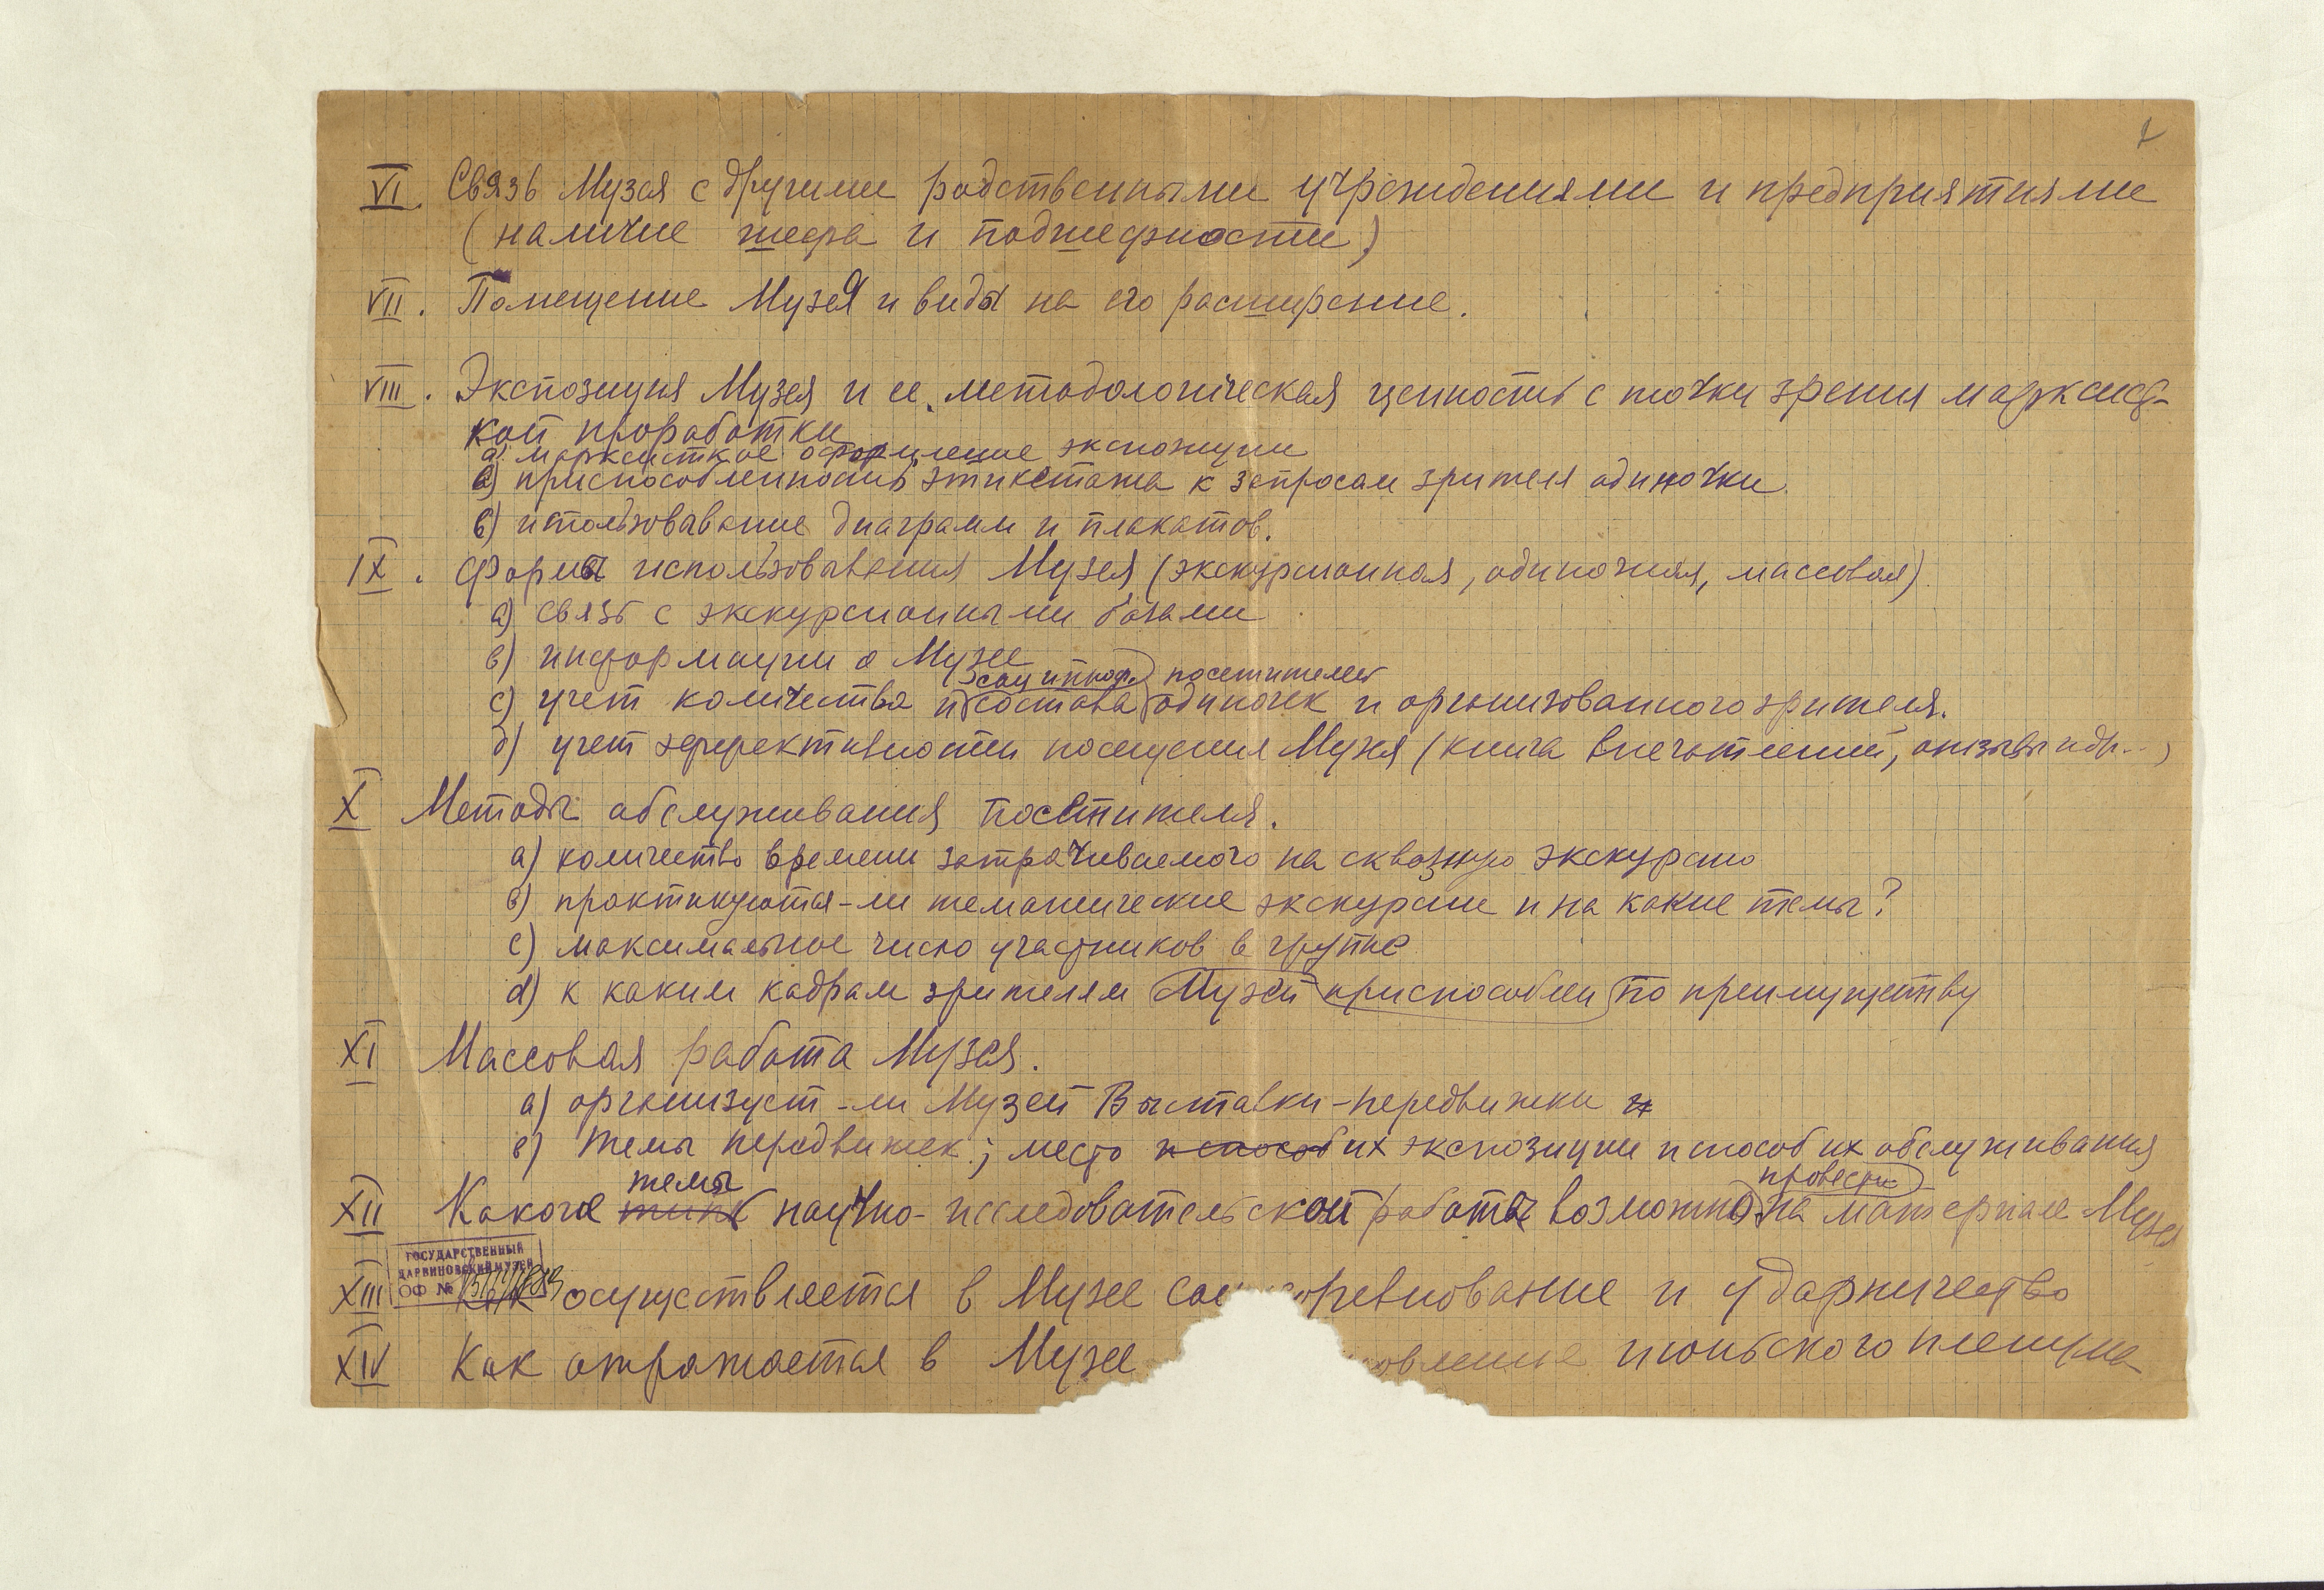 VI. Связь Музея с другими родственными учреждениями и предприятиями
(наличие шефа и подшефности)
VII. Помещение Музея и виды на его расширение.
VIII. Экспозиция Музея и ее методологическая ценность с точки зрения марксист-
кой проработки
а) марксисткое оформление экспозиции
в) приспособленность этикетажа к запросам зрителя одиночки.
в) использовывание диаграмм и плакатов.
IX. Формы использовывания Музея (экскурсионная, одиночная, массовая).
а) связь с экскурсионными базами
в) информации о Музее
соц и проф. посетителей
с) учет количества и состава одиночек и организованного зрителя.
d) учет эффективности посещения Музея (книга впечатлений, отзывы и др...)
X Методы обслуживания посетителя.
а) количество времени затрачиваемого на сквозную экскурсию
в) практикуются-ли тематические экскурсии и на какие темы?
с) максимальное число участников в группе
d) к каким кадрам зрителям Музей приспособлен по преимуществу
XI Массовая работа Музея.
а) организует-ли Музей Выставки-передвижки и
в) темы передвижек; место и способ их экспозиции и способ их обслуживания
темы провести
XII Какого типа научно-исследовательской работы возможно на материале Музея
ГОСУДАРСТВЕННЫЙ
ДАРВИНОВСКИЙ МУЗЕЙ
ОФ №
XIII Как осуществляется в Музее соц соревнование и ударничество
XIV Как отражается в Музее овление июньского пленума